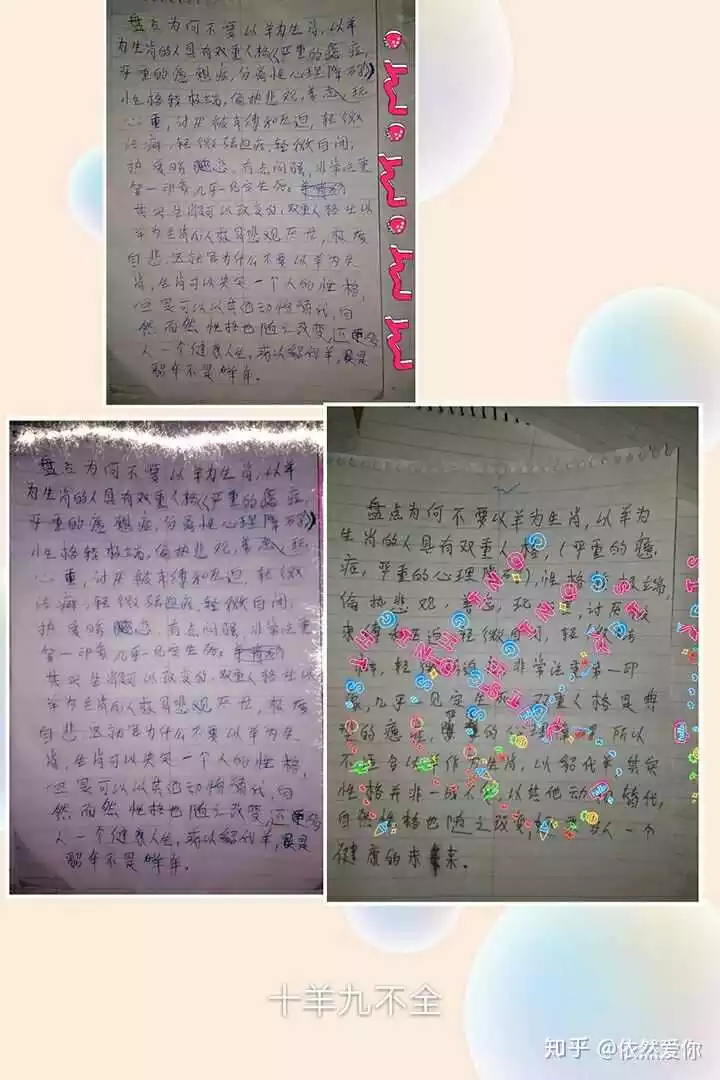 盘点为何不要以羊为生肖,以羊
为生肖的人具有双重人格(严重的癔症,
严重的臆想症,分离性心理障碍)
性格较极端,偏执悲观,善恋,玩
心重,讨厌被束缚和压迫,轻微
洁癖,轻微强迫症,轻微自闭,
有点闷骚,非常注重
第一印象几乎一见定生死。
其实生肖可以改变的,双重人格
羊为生肖的人极易悲观厌世,极度
自悲,这就是为什么不要以羊为生
肖,生肖可以决定一个人的性格,
但是可以以其他动物替代,自
然而然性格也随之改变,还
人一个健康人生,或以貂代羊,
貂年不是羊年。
盘点为何不要以羊为生肖,以羊
为生肖的人具有双重人格(严重的癔症,
严重的臆想症,分离性心理障碍)
性格较极端,偏执悲观,善恋,玩
心重,讨厌被束缚和压迫,轻微
洁癖,轻微强迫症,轻微自闭,
有点闷骚,非常注重
第一印象几乎一见定生死。
其实生肖可以改变的,双重人格
羊为生肖的人极易悲观厌世,极度
自悲,这就是为什么不要以羊为生
肖,生肖可以决定一个人的性格,
但是可以以其他动物替代,自
然而然性格也随之改变,还
人一个健康人生,或以貂代羊,
貂年不是羊年。
盘点为何不要以羊为生肖,以羊为
生肖的人具有双重人格,(严重的癔
症,严重的心理障碍),性格极端,
偏执悲观,善恋,玩心重,讨厌被
束缚和压迫,轻微自闭,轻微洁
癖,轻微强迫,非常注重第一印
象,几乎一见定生死,双重人格是典
型的癔症,的心理,所以
不适合以羊作为生肖,以貂代羊其实
性格并非一成不变,以其他动物替代,
自然性格也随之改变,人一个
健康的未来。
十羊九不全
知乎 @依然爱你